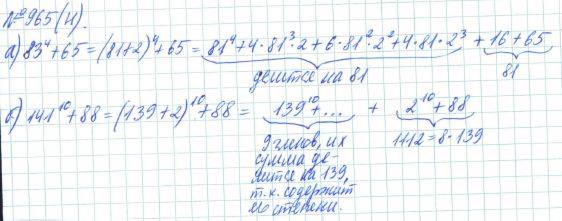 №965(н).
а) 83⁴+65=(81+2)⁴+65=81⁴+4·81³·2+6·81²·2²+4·81·2³+16+65
делится на 81
81
б) 141¹⁰+88=(139+2)¹⁰+88= 139¹⁰+... + 2¹⁰+88
9 членов, их
сумма де-
лится на 139,
т.к. содержит
его степени.
1112=8·139